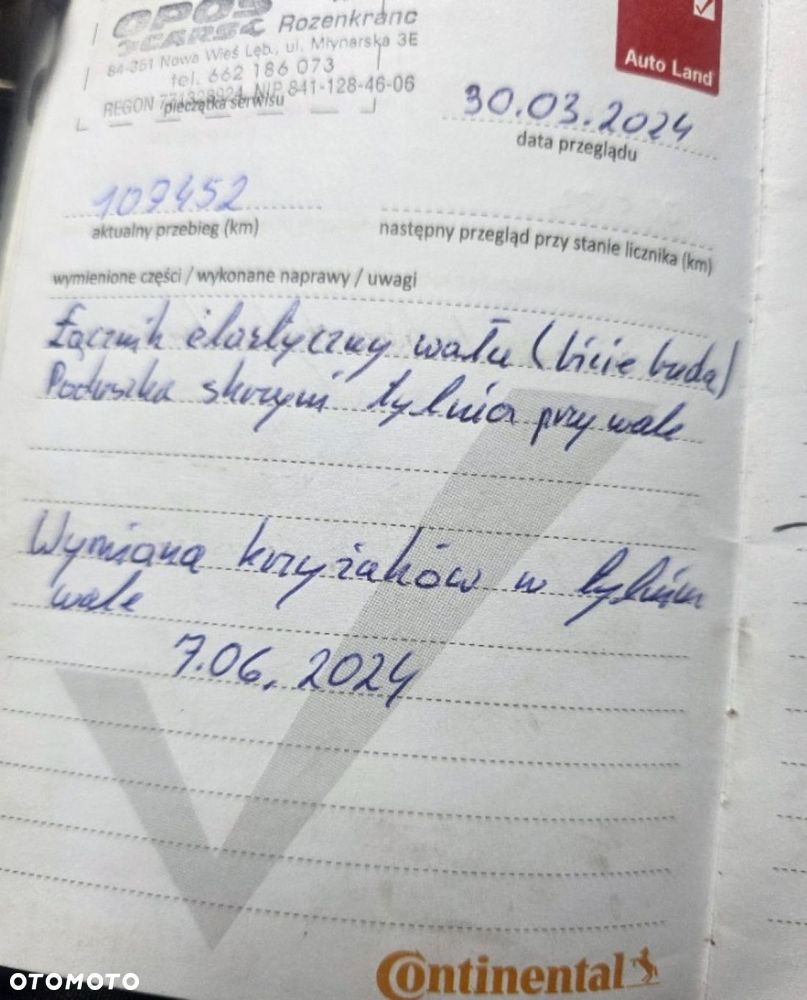 OPOS
CARS Rozenkranc
84-351 Nowa Wieś Lęb., ul. Młynarska 3E
tel. 662 186 073
REGON NIP 841-128-46-06
pieczątka serwisu
Auto Land
30.03.2024
data przeglądu
107452
aktualny przebieg (km)
następny przegląd przy stanie licznika (km)
wymienione części / wykonane naprawy / uwagi
Łącznik elastyczny wału (bicie buda)
Poduszka skrzyni tylnia przy wale
Wymiana krzyżaków w tylnim
wale
7.06.2024
Continental
OTOMOTO